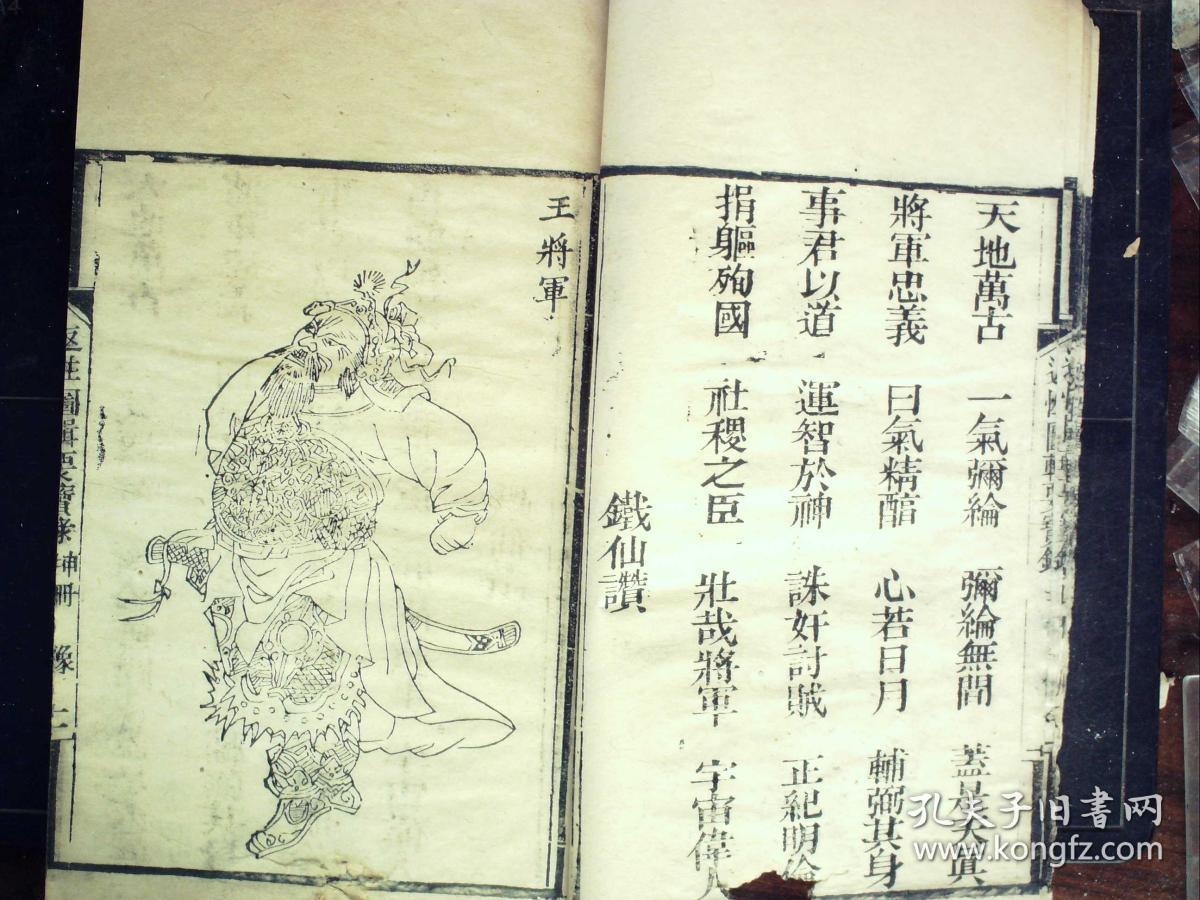 天地萬古 一氣彌綸 彌綸無間 蓋是天眞
將軍忠義 曰氣精酯 心若日月 輔弼其身
事君以道 運智於神 誅奸討賊 正紀明倫
捐軀殉國 社稷之臣 壯哉將軍 宇宙偉人
鐵仙讚
王將軍
孔夫子旧书网
www.kongfz.com